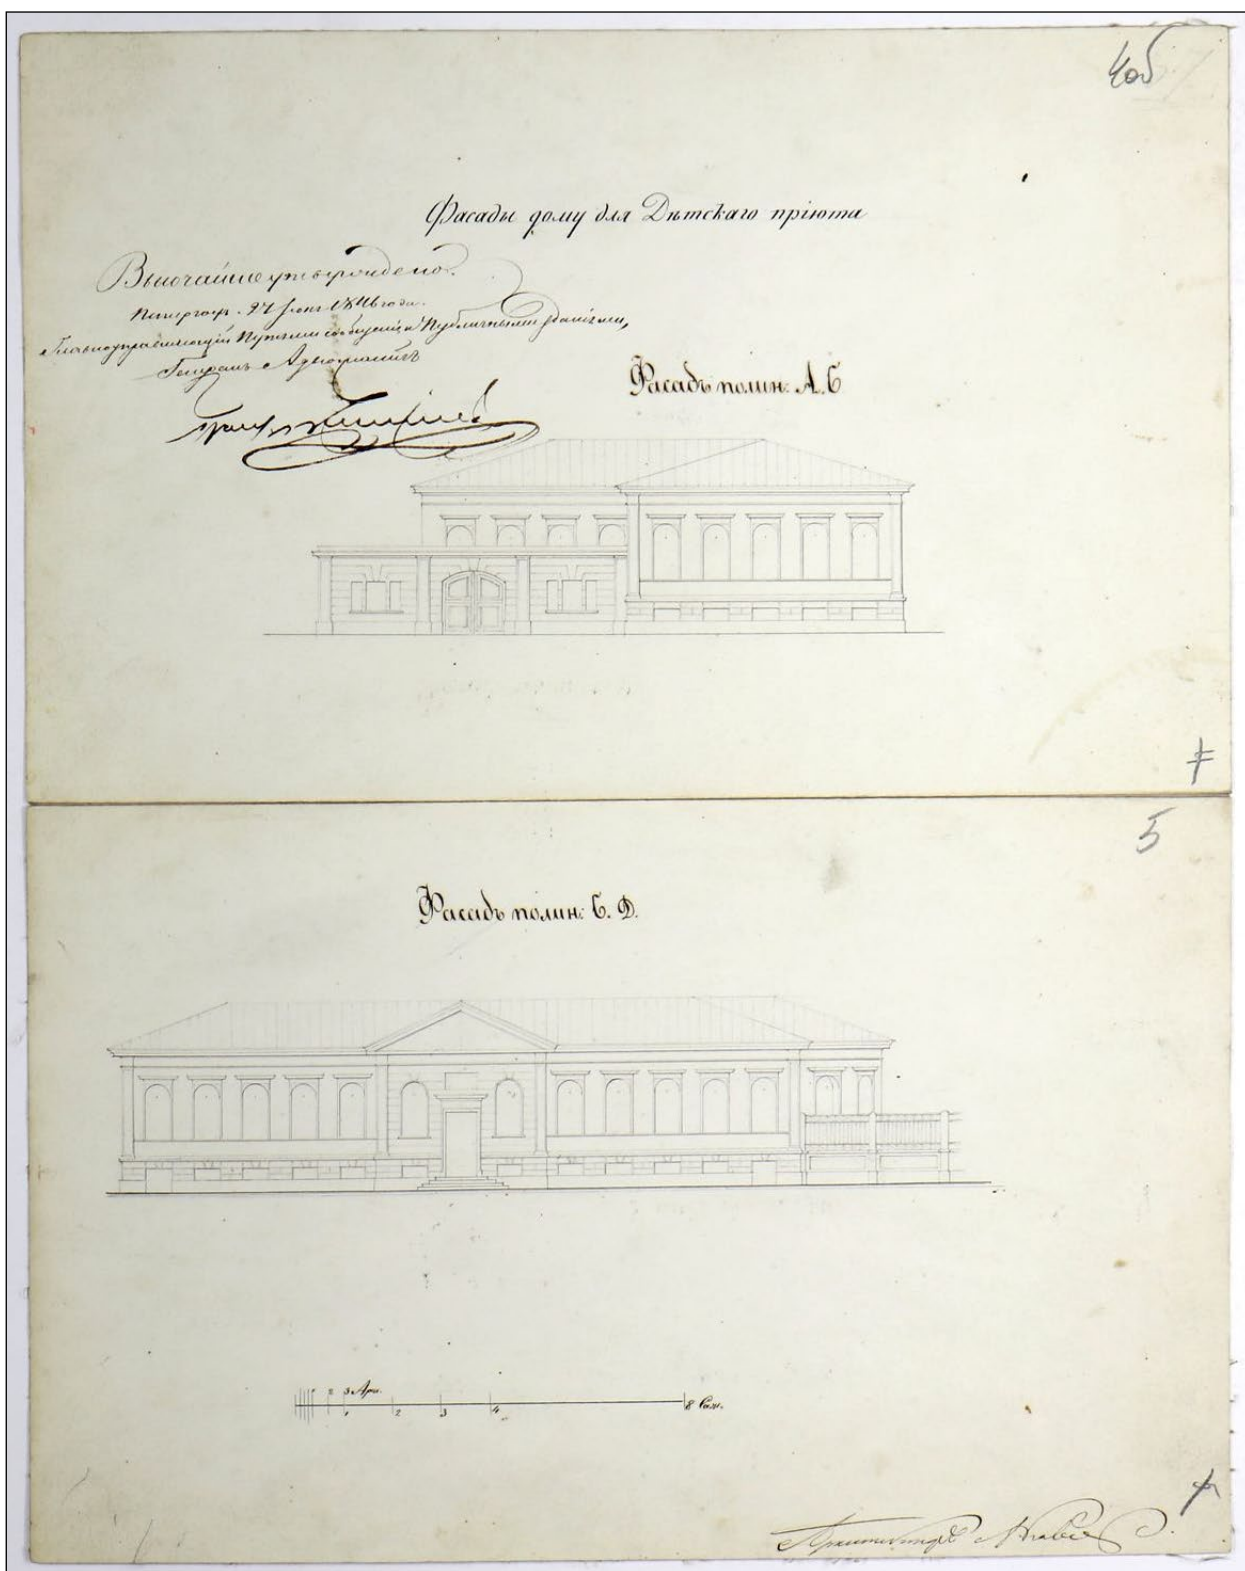 4об
Фасады дому для Дѣтскаго пріюта
Высочайше утверждено.
Петергофъ. 27 Іюня 1846 года.
Главноуправляющій Путями сообщенія и Публичными зданіями,
Генералъ Адъютантъ
Графъ Клейнмихель
Фасадъ по лин: А. Б
5
Фасадъ по лин: Б. Д.
2 3 Арш.
1 2 3 4 8 Саж.
Архитекторъ